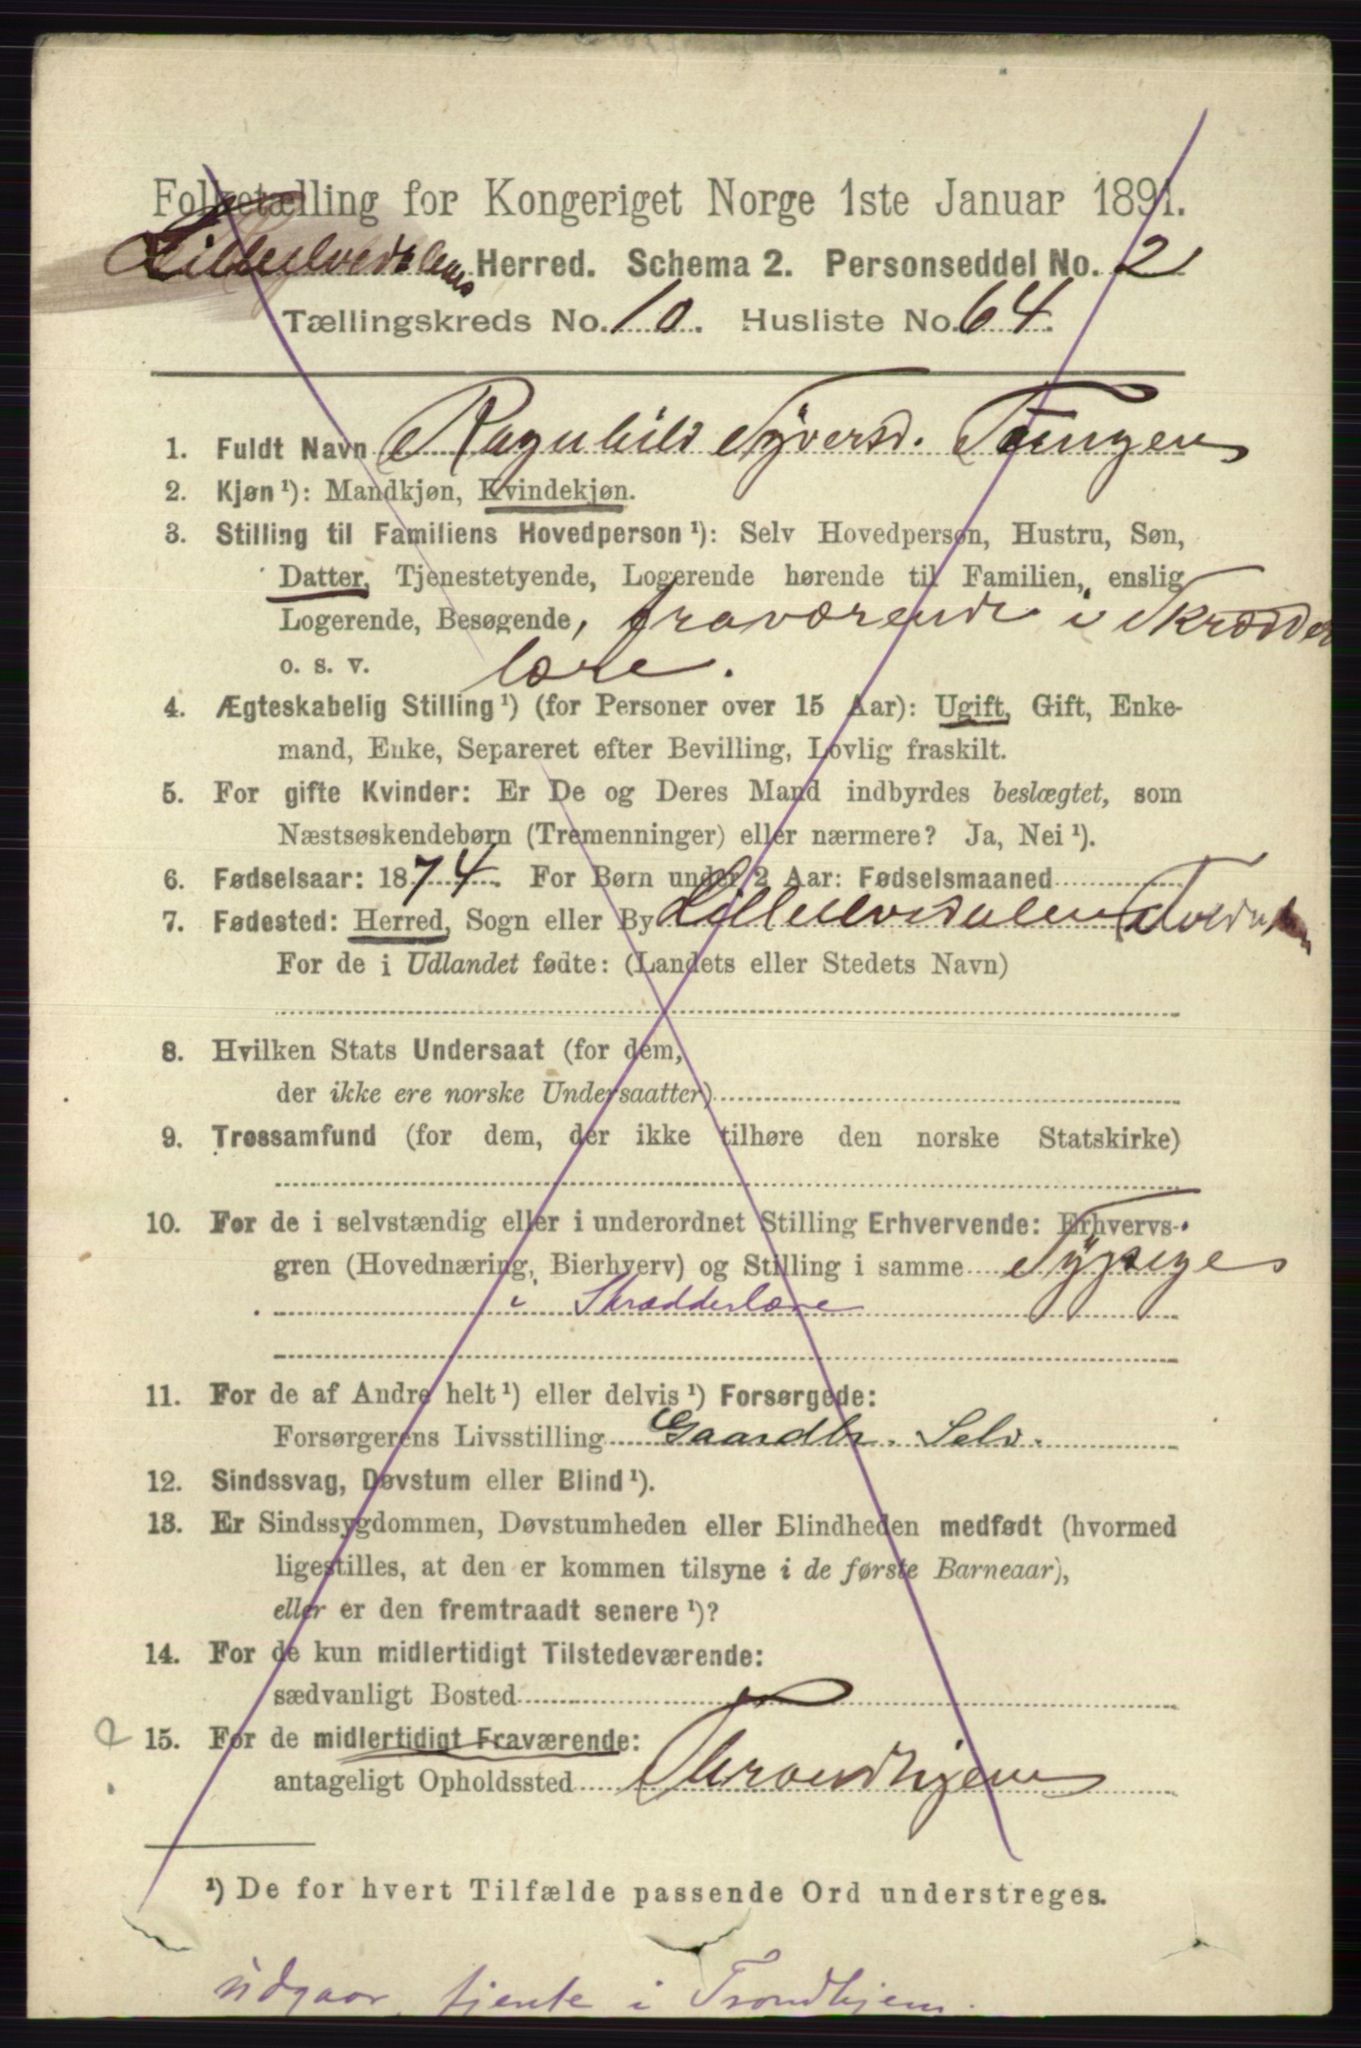 Folketælling for Kongeriget Norge 1ste Januar 1891.
Lilleelvedalens Herred. Schema 2. Personseddel No. 2
Tællingskreds No. 10. Husliste No. 64.
1. Fuldt Navn Ragnhild Syversd. Tangen
2. Kjøn ¹): Mandkjøn, Kvindekjøn.
3. Stilling til Familiens Hovedperson ¹): Selv Hovedperson, Hustru, Søn,
Datter, Tjenestetyende, Logerende hørende til Familien, enslig
Logerende, Besøgende, fraværende i Skrædder
o. s. v. lære.
4. Ægteskabelig Stilling ¹) (for Personer over 15 Aar): Ugift, Gift, Enke-
mand, Enke, Separeret efter Bevilling, Lovlig fraskilt.
5. For gifte Kvinder: Er De og Deres Mand indbyrdes beslægtet, som
Næstsøskendebørn (Tremenninger) eller nærmere? Ja, Nei ¹).
6. Fødselsaar: 1874. For Børn under 2 Aar: Fødselsmaaned
7. Fødested: Herred, Sogn eller By Lilleelvedalen
For de i Udlandet fødte: (Landets eller Stedets Navn)
8. Hvilken Stats Undersaat (for dem,
der ikke ere norske Undersaatter)
9. Trossamfund (for dem, der ikke tilhøre den norske Statskirke)
10. For de i selvstændig eller i underordnet Stilling Erhvervende: Erhvervs-
gren (Hovednæring, Bierhverv) og Stilling i samme
i Skrædderlære
11. For de af Andre helt ¹) eller delvis ¹) Forsørgede:
Forsørgerens Livsstilling Gaardbr. Selv.
12. Sindssvag, Døvstum eller Blind ¹).
13. Er Sindssygdommen, Døvstumheden eller Blindheden medfødt (hvormed
ligestilles, at den er kommen tilsyne i de første Barneaar),
eller er den fremtraadt senere ¹)?
14. For de kun midlertidigt Tilstedeværende:
sædvanligt Bosted
15. For de midlertidigt Fraværende:
antageligt Opholdssted Throndhjem
¹) De for hvert Tilfælde passende Ord understreges.
udgaar, tjente i Trondhjem.